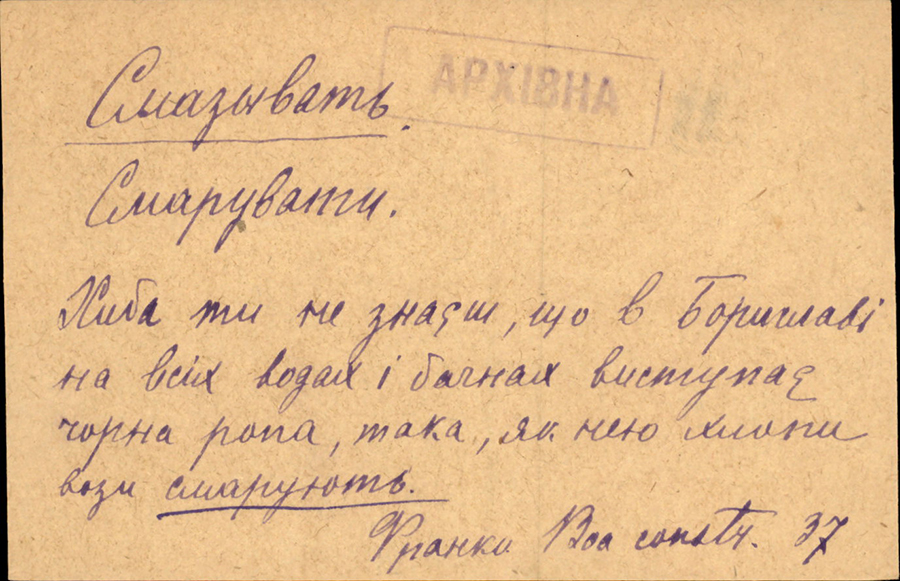 АРХІВНА
Смазывать.
Смарувати.
Хиба ти не знаєш, що в Бориславі
на всіх водах і багнах виступає
чорна ропа, така, як нею хлопи
вози смарують.
Франко Boa constr. 37